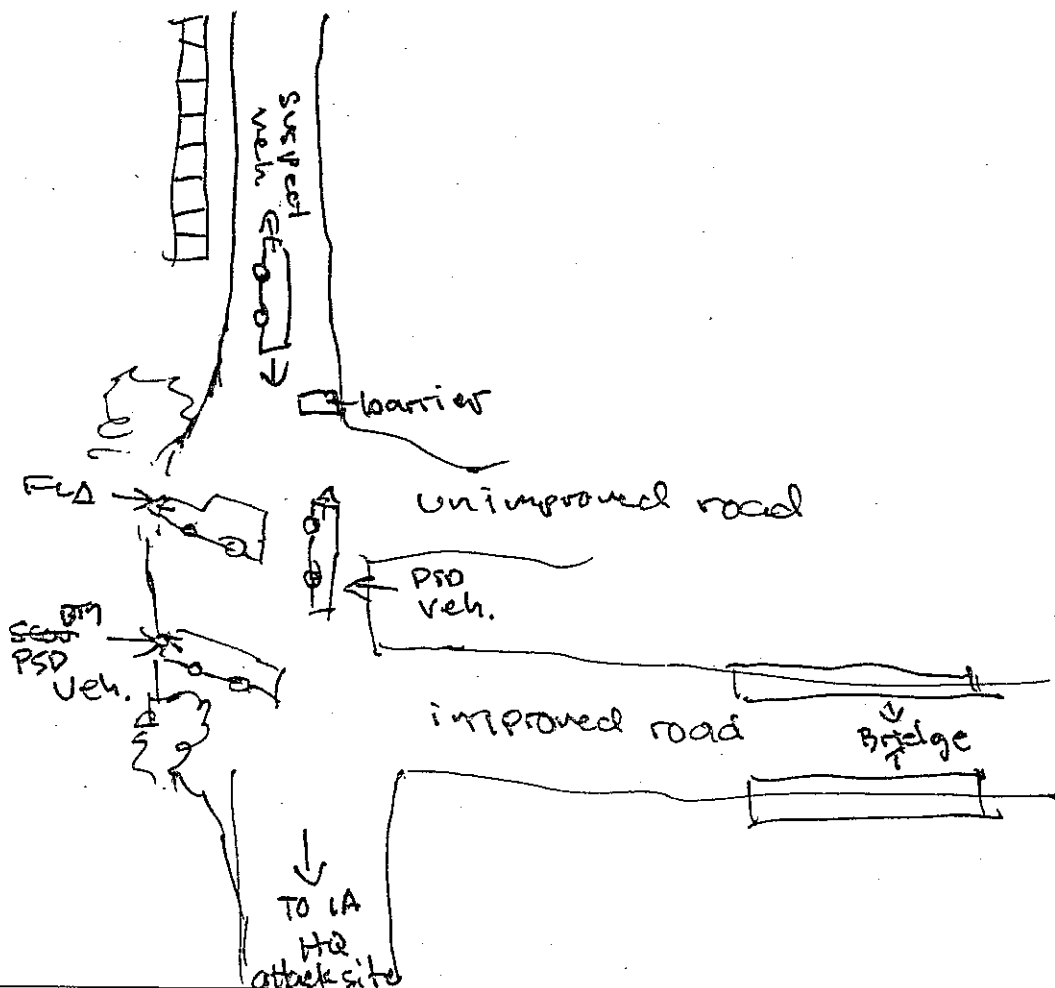 suspect
veh
barrier
unimproved road
PSD
veh.
PSD
veh.
improved road
Bridge
TO IA
HQ
attack site